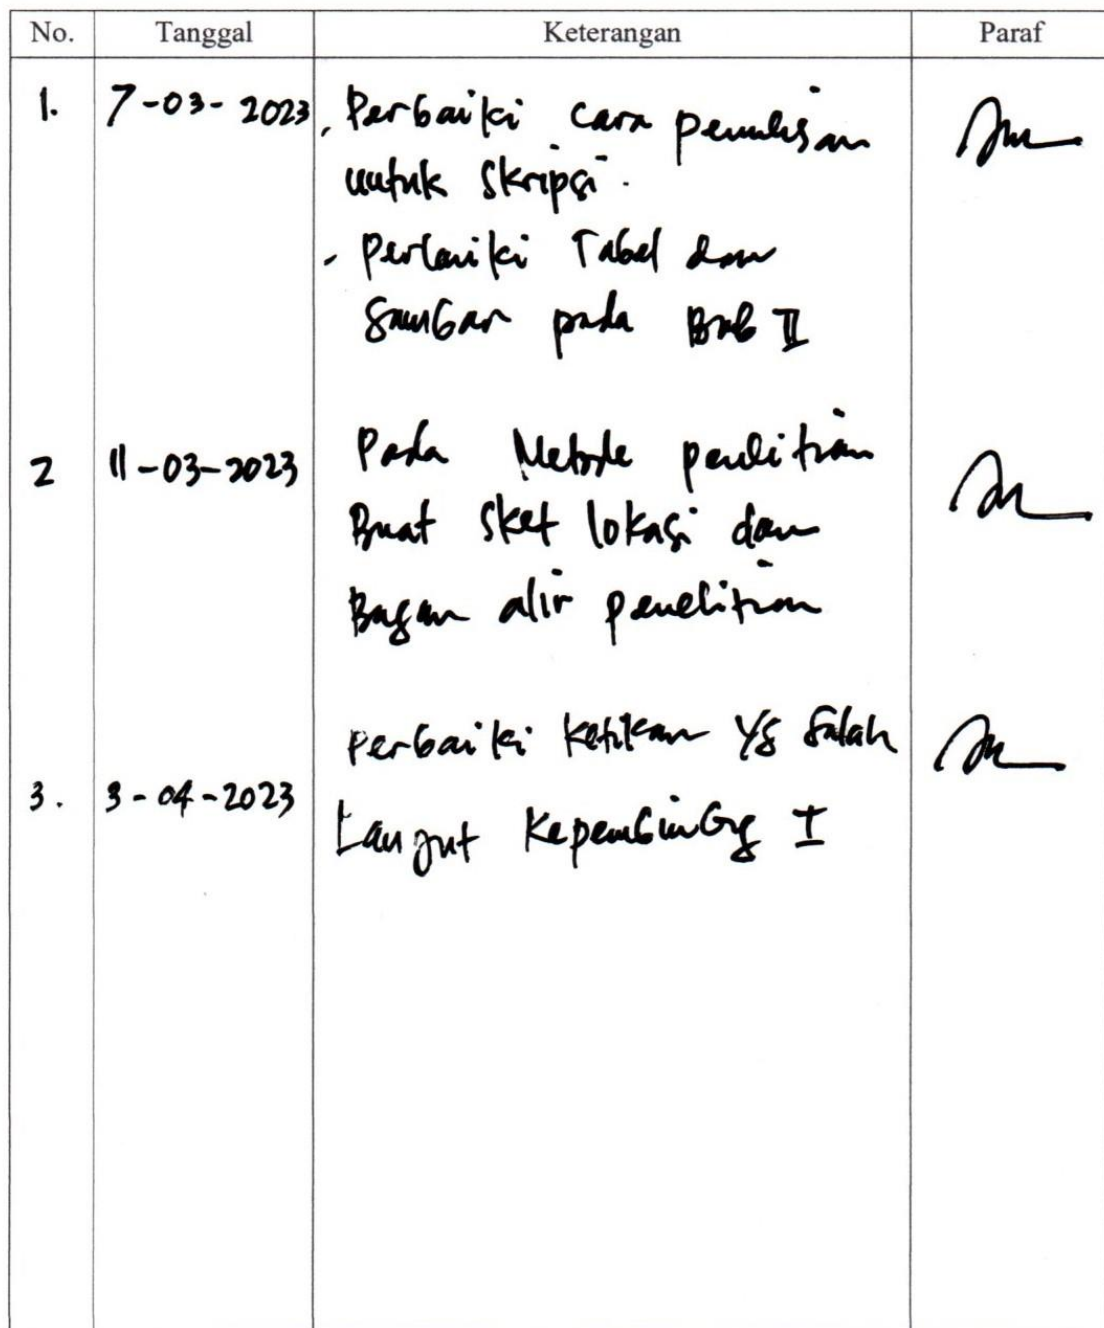 No. Tanggal Keterangan Paraf
1. 7-03-2023 - Perbaiki cara penulisan
untuk skripsi.
- Perbaiki Tabel dan
gambar pada Bab II
2 11-03-2023 Pada Metode penelitian
Buat sket lokasi dan
Bagan alir penelitian
Perbaiki ketikan yg salah
3. 3-04-2023
Lanjut Kepembimbing I